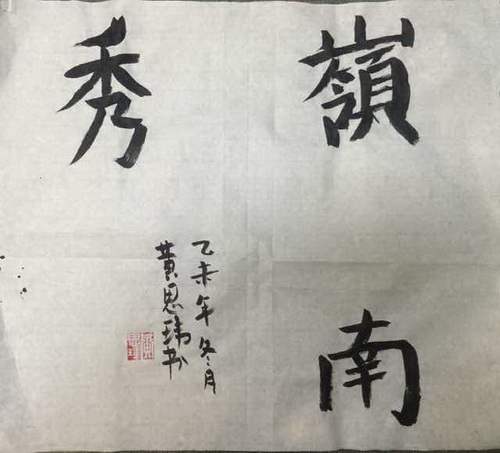 嶺南
秀
乙未年冬月
黄思瑋书